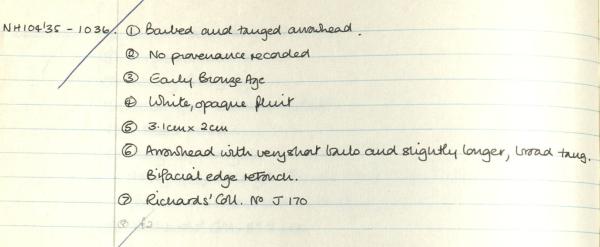 NH104'35 - 1036. ① Barbed and tanged arrowhead.
② No provenance recorded
③ Early Bronze Age
④ White, opaque flint
⑤ 3.1cm x 2cm
⑥ Arrowhead with very short barbs and slightly longer, broad tang.
Bifacial edge retouch.
⑦ Richards' Coll. No J 170